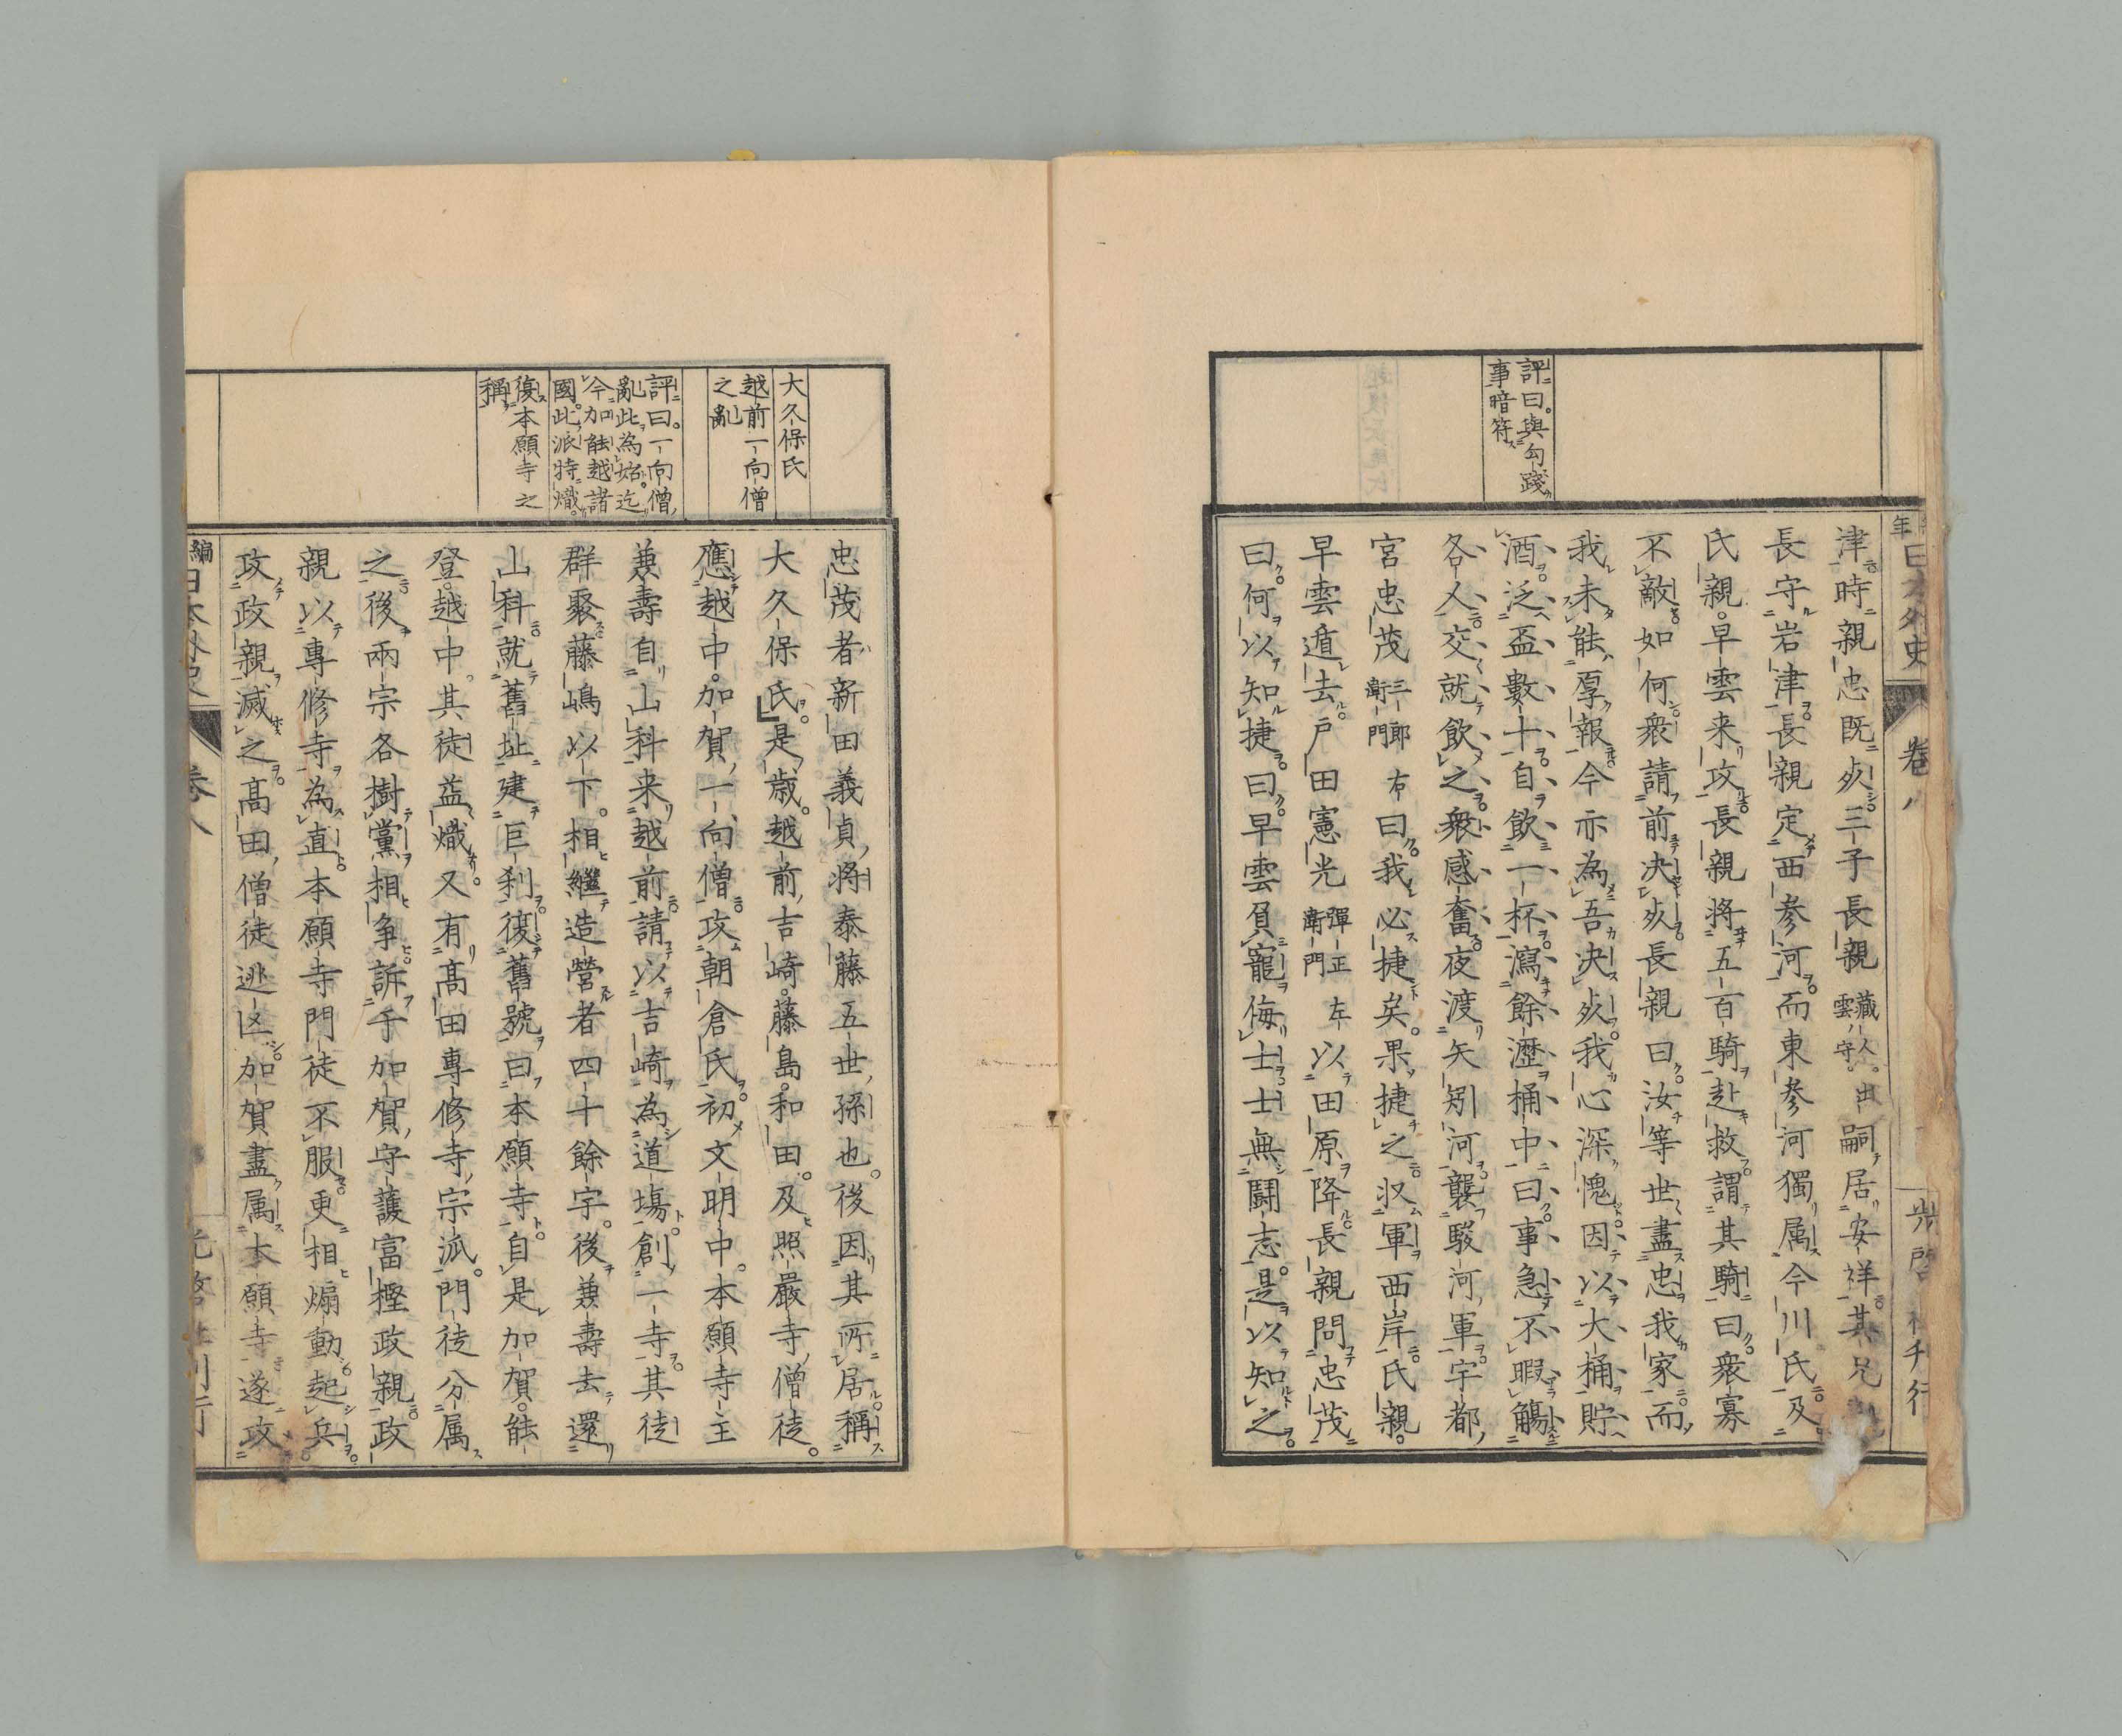 評曰。與勾踐
事暗符
津時親忠既歿三子長親藏人。出雲守。嗣居安祥其兄
長守岩津長親定西參河。而東參河獨属今川氏及
氏親。早雲来攻長親将五百騎赴救謂其騎曰衆寡
不敵。如何衆請前决歿長親曰。汝等世盡忠我家而
我未能厚報今亦為吾决歿我心深愧因以大桶貯
酒泛盃數十自飲一杯瀉餘瀝桶中曰事急不暇觴
各人交就飲之衆感奮夜渡矢矧河襲駿河軍宇都
宮忠茂三郎右衛門曰。我必捷矣。果捷之収軍西岸氏親。
早雲遁去戸田憲光彈正左衛門以田原降長親問忠茂
曰。何以知捷曰。早雲負寵侮士士無鬪志。是以知之。
日本外史
卷八
大久保氏
越前一向僧
之亂
評曰。一向僧
亂此為始。迄
今加能越諸
國。此派特熾。
復本願寺之
稱
忠茂者新田義貞将泰藤五世孫也。後因其所居稱
大久保氏。是歳。越前吉崎。藤島。和田。及照嚴寺僧徒。
應越中。加賀一向僧攻朝倉氏。初文明中。本願寺主
兼壽自山科来越前請以吉崎為道塲創一寺其徒
群聚藤嶋以下。相繼造營者四十餘宇。後兼壽去還
山科就舊址建巨刹。復舊號曰本願寺。自是加賀。能
登。越中。其徒益熾。又有髙田專修寺宗派。門徒分属
之後兩宗各樹黨相争訴于加賀守護富樫政親政
親以專修寺為直。本願寺門徒不服更相煽動起兵。
攻政親滅之。髙田僧徒逃区。加賀盡属本願寺遂攻
卷八